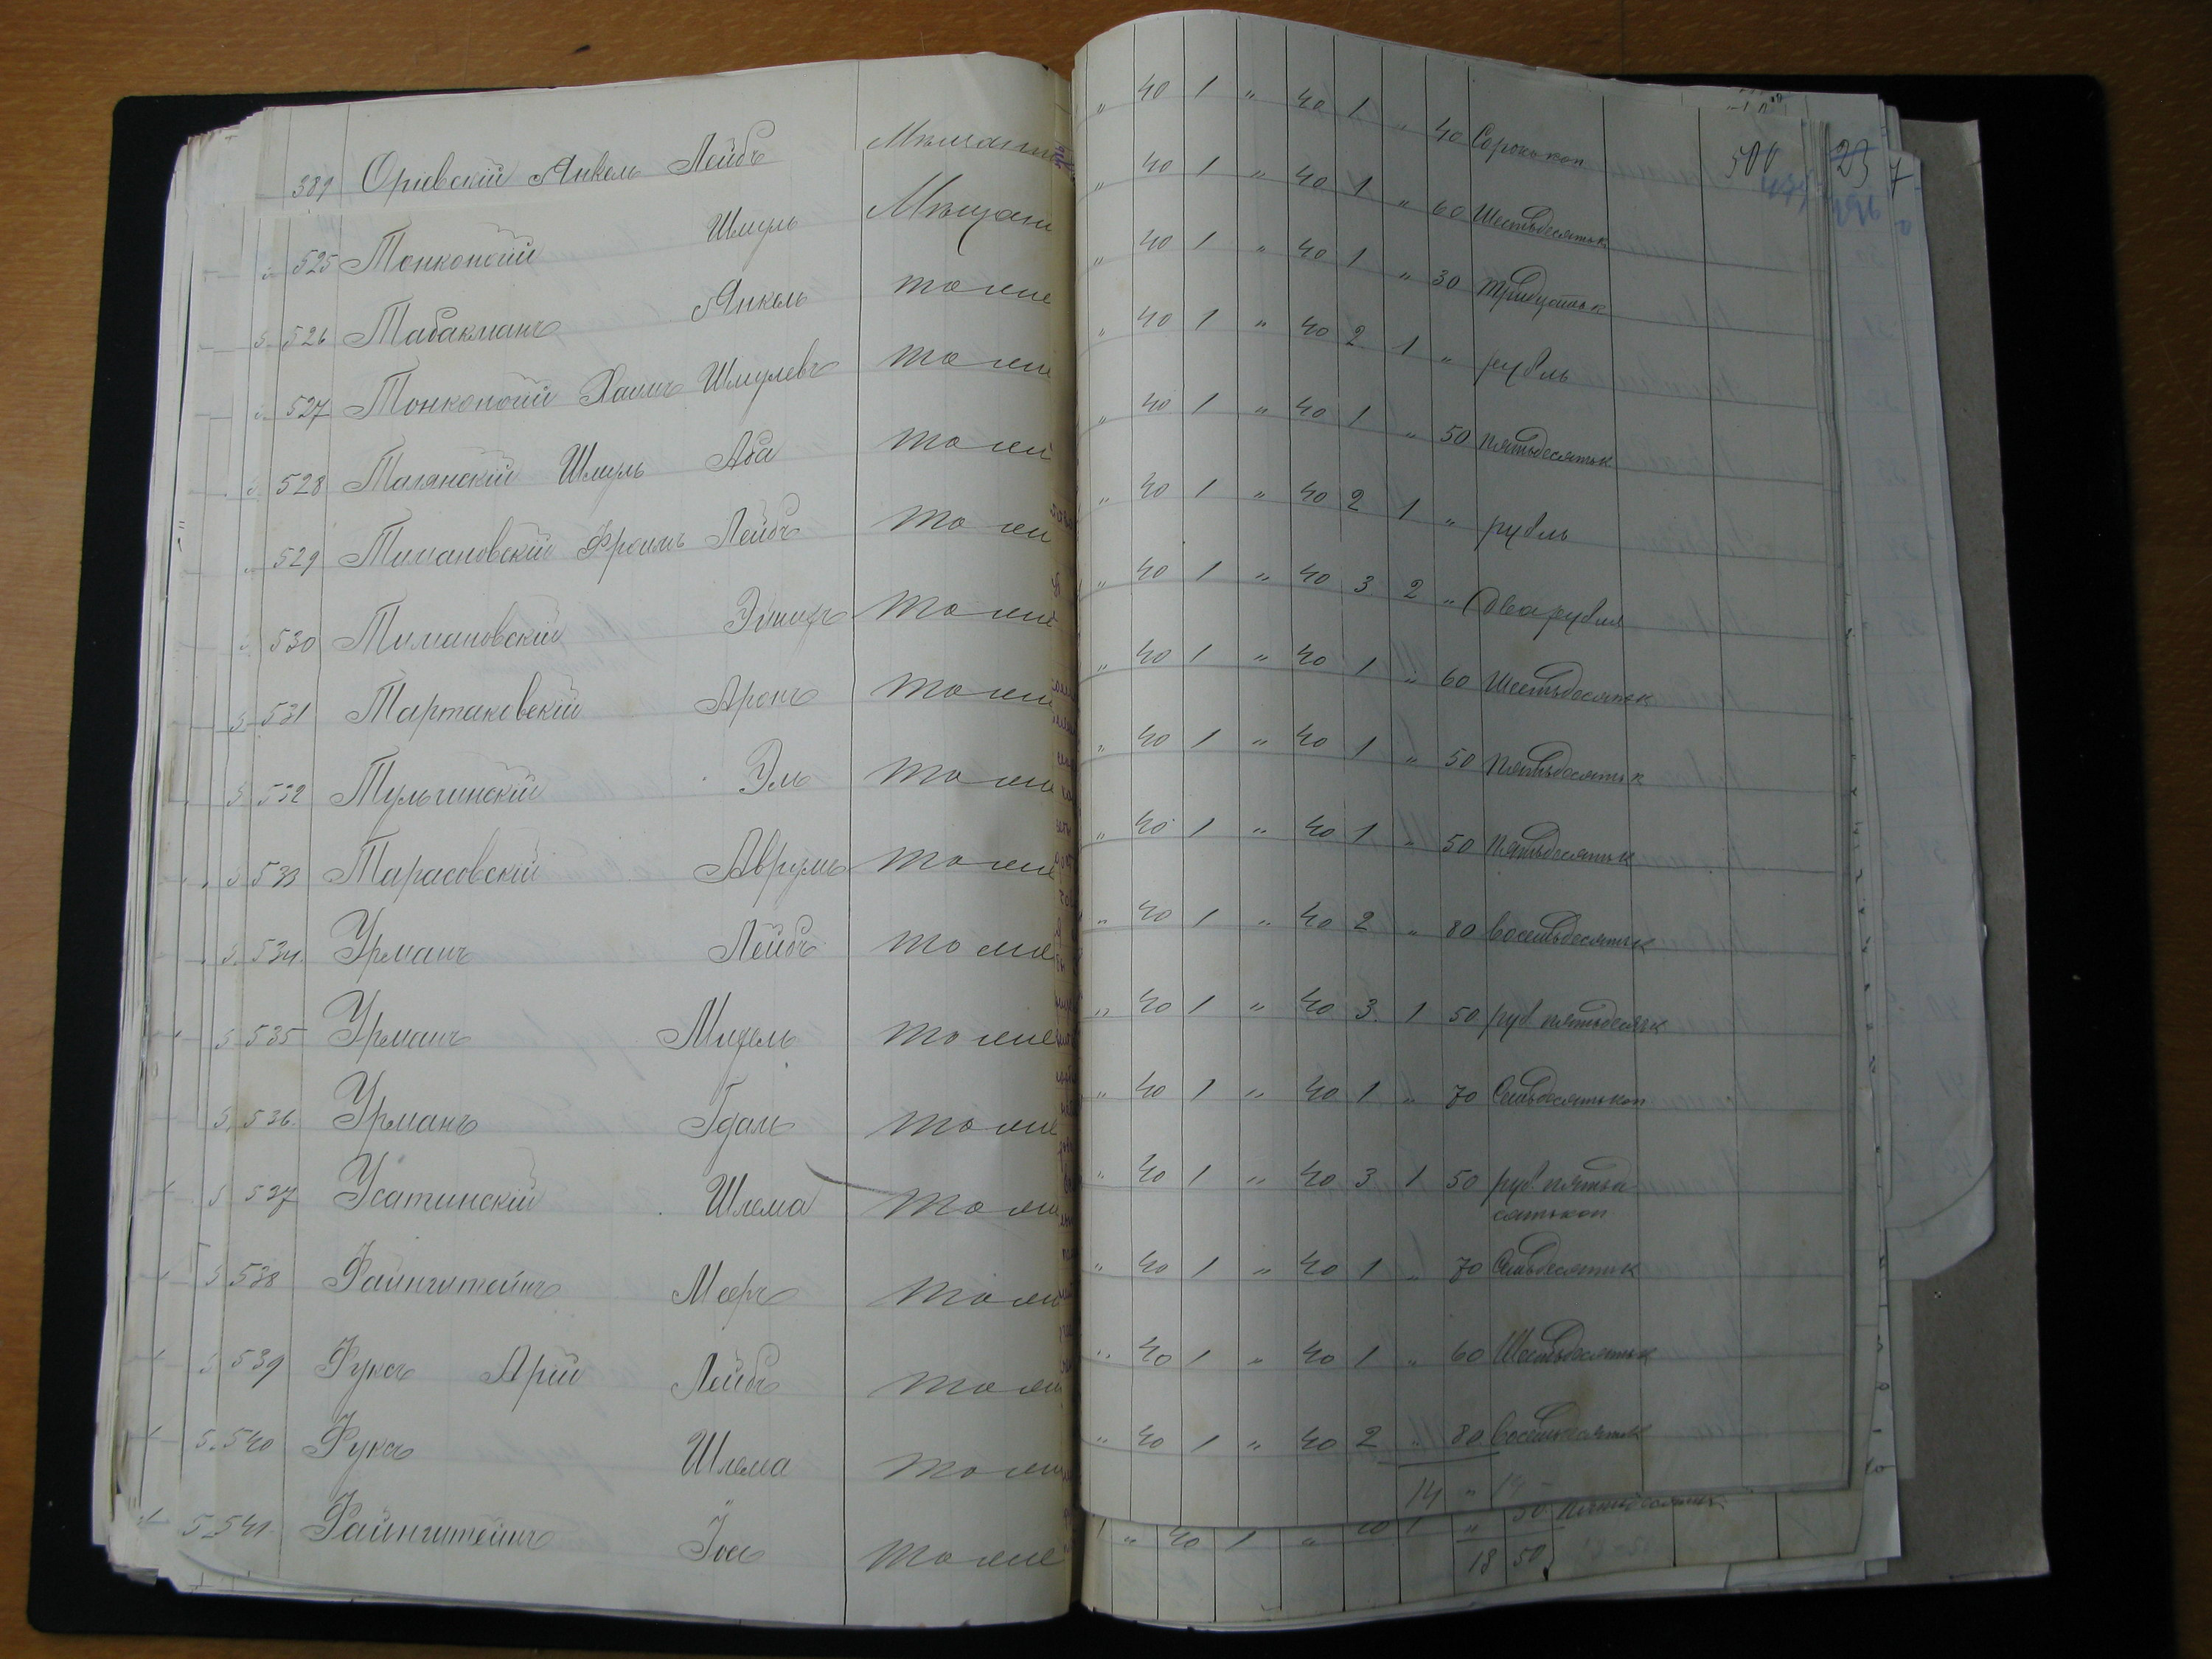 389 Орiевскiй Янкель Лейбъ Мѣщани
525 Тонконогiй Шмуль Мѣщани
526 Табакманъ Янкель тоже
527 Тонконогiй Хаимъ Шмулевъ тоже
528 Шмуль Аба тоже
529 Тимановскiй Фроимъ Лейбъ тоже
530 Тимановскiй тоже
531 Мартаковскiй Аронъ тоже
532 Тульчинскiй Эль тоже
533 Тарасовскiй Аврумъ тоже
534 Урманъ Лейбъ тоже
535 Урманъ тоже
536 Урманъ Гдаль тоже
537 Усатинскiй Шлема тоже
538 Файнштейнъ Мееръ тоже
539 Фуксъ Арiй Лейбъ тоже
540 Фуксъ Шлема тоже
541 Файнштейнъ Iосъ тоже
" 40 1 " 40 1 " 40 Сорокъ коп
500 23 7
" 40 1 " 40 1 " 60 Шестьдесятъ к
" 40 1 " 40 1 " 30 тридцать к
" 40 1 " 40 2 1 " рубль
" 40 1 " 40 1 " 50 пятьдесятъ к
" 40 1 " 40 2 1 " рубль
" 40 1 " 40 3 2 " Два рубля
" 40 1 " 40 1 " 60 Шестьдесятъ к
" 40 1 " 40 1 " 50 пятьдесятъ к
" 40 1 " 40 1 " 50 пятьдесятъ к
" 40 1 " 40 2 " 80 восемьдесятъ к
" 40 1 " 40 3 1 50 руб. пятьдесятъ к
" 40 1 " 40 1 " 70 Семьдесятъ коп
" 40 1 " 40 3 1 50 руб. пятьде
сятъ коп
" 40 1 " 40 1 " 70 Семьдесятъ к
" 40 1 " 40 1 " 60 Шестьдесятъ к
" 40 1 " 40 2 " 80 восемьдесятъ к
14 " 14 -
" 40 1 " 40 1 " 50 пятьдесятъ
18 50